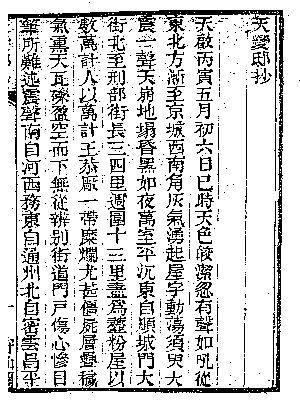 天變邸抄
天啟丙寅五月初六日巳時天色皎潔忽有聲如吼從
東北方漸至京城西南角灰氣湧起屋宇動蕩須臾大
震一聲天崩地塌昏黑如夜萬室平沉東自順城門大
街北至刑部街長三四里週圍十三里盡為齏粉屋以
數萬計人以萬計王恭厰一帶糜爛尤甚僵屍層疊穢
氣熏天瓦礫盈空而下無從辨別街道門戶傷心慘目
筆所難述震聲南自河西務東自通州北自密雲昌平